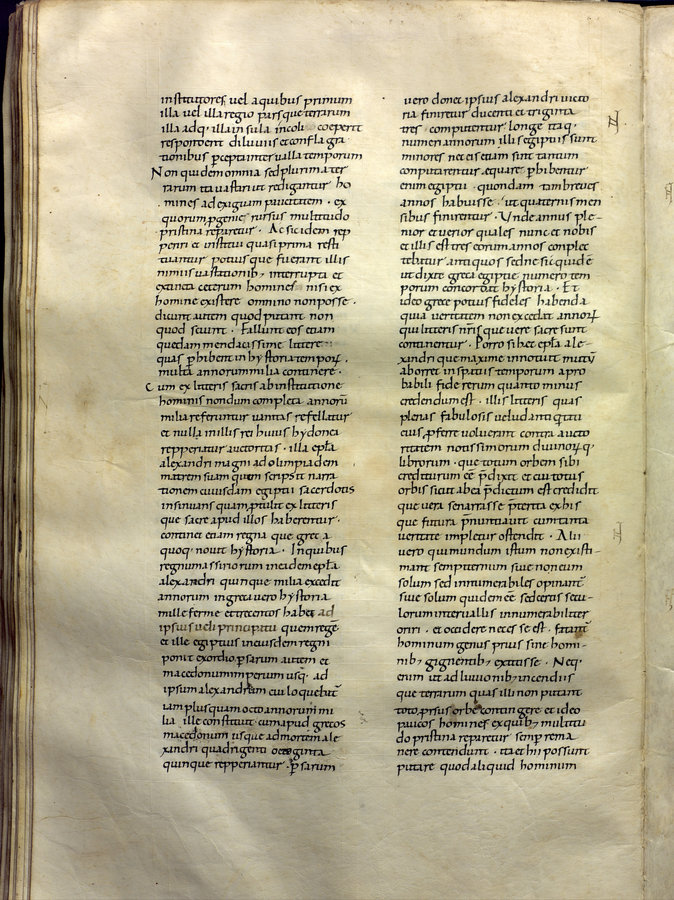 institutores vel aquibus primum
illa vel illa regio parsque terrarum
illa adq; illa insula incoli coeperit
respondent diluviis et conflagra
tionibus p̄cepta intervalla temporum
Non quidem omnia sed plurima ter
rarum ita vastari ut redigantur ho
mines ad exiguam paucitatem · ex
quorum p̄genie rursus multitudo
pristina reparetur · Ac sic idem rep
periri et institui quasi prima resti
tuantur potius que fuerant illis
nimiis vastationib; interrupta et
extincta ceterum homines nisi ex
homine existere omnino non posse ·
dicunt autem quod putant non
quod sciunt · Fallunt eos etiam
quedam mendacissime littere
quas p̄hibent in hystoria temporū ·
multa annorum milia continere ·
Cum ex litteris sacris ab institutione
hominis nondum completa annorū
milia referuntur vanitas refellatur
et nulla in illis rei huius hydonea
repperatur auctoritas · illa epl̄a
alexandri magni ad olimpiadem
matrem suam quem scripsit narra
tionem cuiusdam egiptii sacerdotis
insinuans quam p̄tulit ex litteris
que sacre apud illos haberentur ·
continet etiam regna que greca
quoq· novit hystoria · In quibus
regnum assiriorum in eadem epl̄a
alexandri quinque milia excedit
annorum in greca vero hystoria
mille ferme et trecentos habet ad
ipsius beli principatu quem rege
et ille egiptius in eiusdem regni
ponit exordio p̄sarum autem et
macedonum imperium usq· ad
ipsum alexandrum cui loquebat̄
iam plusquam octo annorum mi
lia ille constituit cum apud grecos
macedonum usque ad mortem ale
xandri quadrigenti octoginta
quinque repperiantur · p̄sarum
vero donec ipsius alexandri victo
ria finiretur ducenti et triginta
tres computentur longe itaq·
numeri annorum illis egiptiis sunt
minores nec eis etiam si ter tantum
conputarentur equare p̄hibentur
enim egiptii quondam tam breves
annos habuisse · ut quaternis men
sibus finirentur · Unde annus ple-
nior et verior quales nunc et nobis
et illis est tres eorum annos conplec
tebatur antiquos sed ne sic quidē
ut dixi greca egiptie numero tem
porum concordat hystoria · Et
ideo grece potius fides habenda
quia veritatem non excedat annorū
qui litteris nr̄is que vere sacre sunt
continentur · Porro si hec epl̄a ale-
xandri que maxime innotuit multū
aborret in spatiis temporum a pro
babili fide rerum quanto minus
credendum est · illis litteris quas
plenas fabulosis velud antiquita
cuius p̄ferre voluerint contra aucto
ritatem notissimorum divinorūq·
librorum · que totum orbem sibi
crediturum eē p̄dixit et cui totus
orbis sicut ab ea p̄dictum est credidit
que vera se narrasse p̄terita ex his
que futura p̄nuntiavit cum tanta
veritate impletur ostendit · Alii
vero qui mundum istum non existi-
mant sempiternum sive non eum
solum sed innumerabiles opinant̄
sive solum quidem eē sed certis secu-
lorum intervallis innumerabiliter
oriri · et occidere necesse est · fatant̄
hominum genus prius sine homi-
nib; gignentib; extitisse · Neq·
enim ut adluvionib; incendiis
que terrarum quas illi non putant
toto p̄sus orbe contingere et ideo
paucos homines ex quib; multitu
do pristina reparetur semp̄ rema
nere contendunt · ita et hii possunt
putare quod aliquid hominum